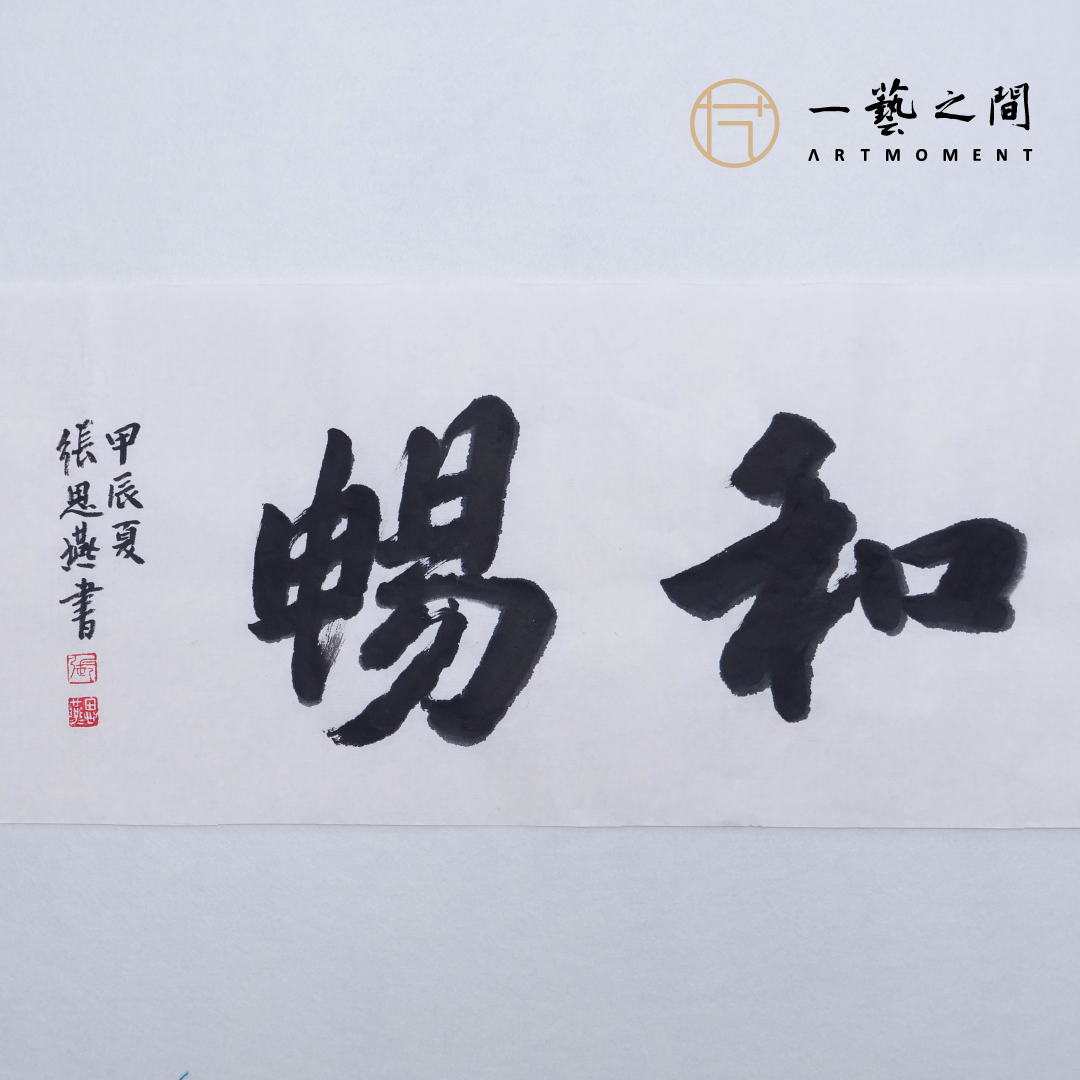 一藝之間
ARTMOMENT
和暢
甲辰夏
張思燕書
張
思燕